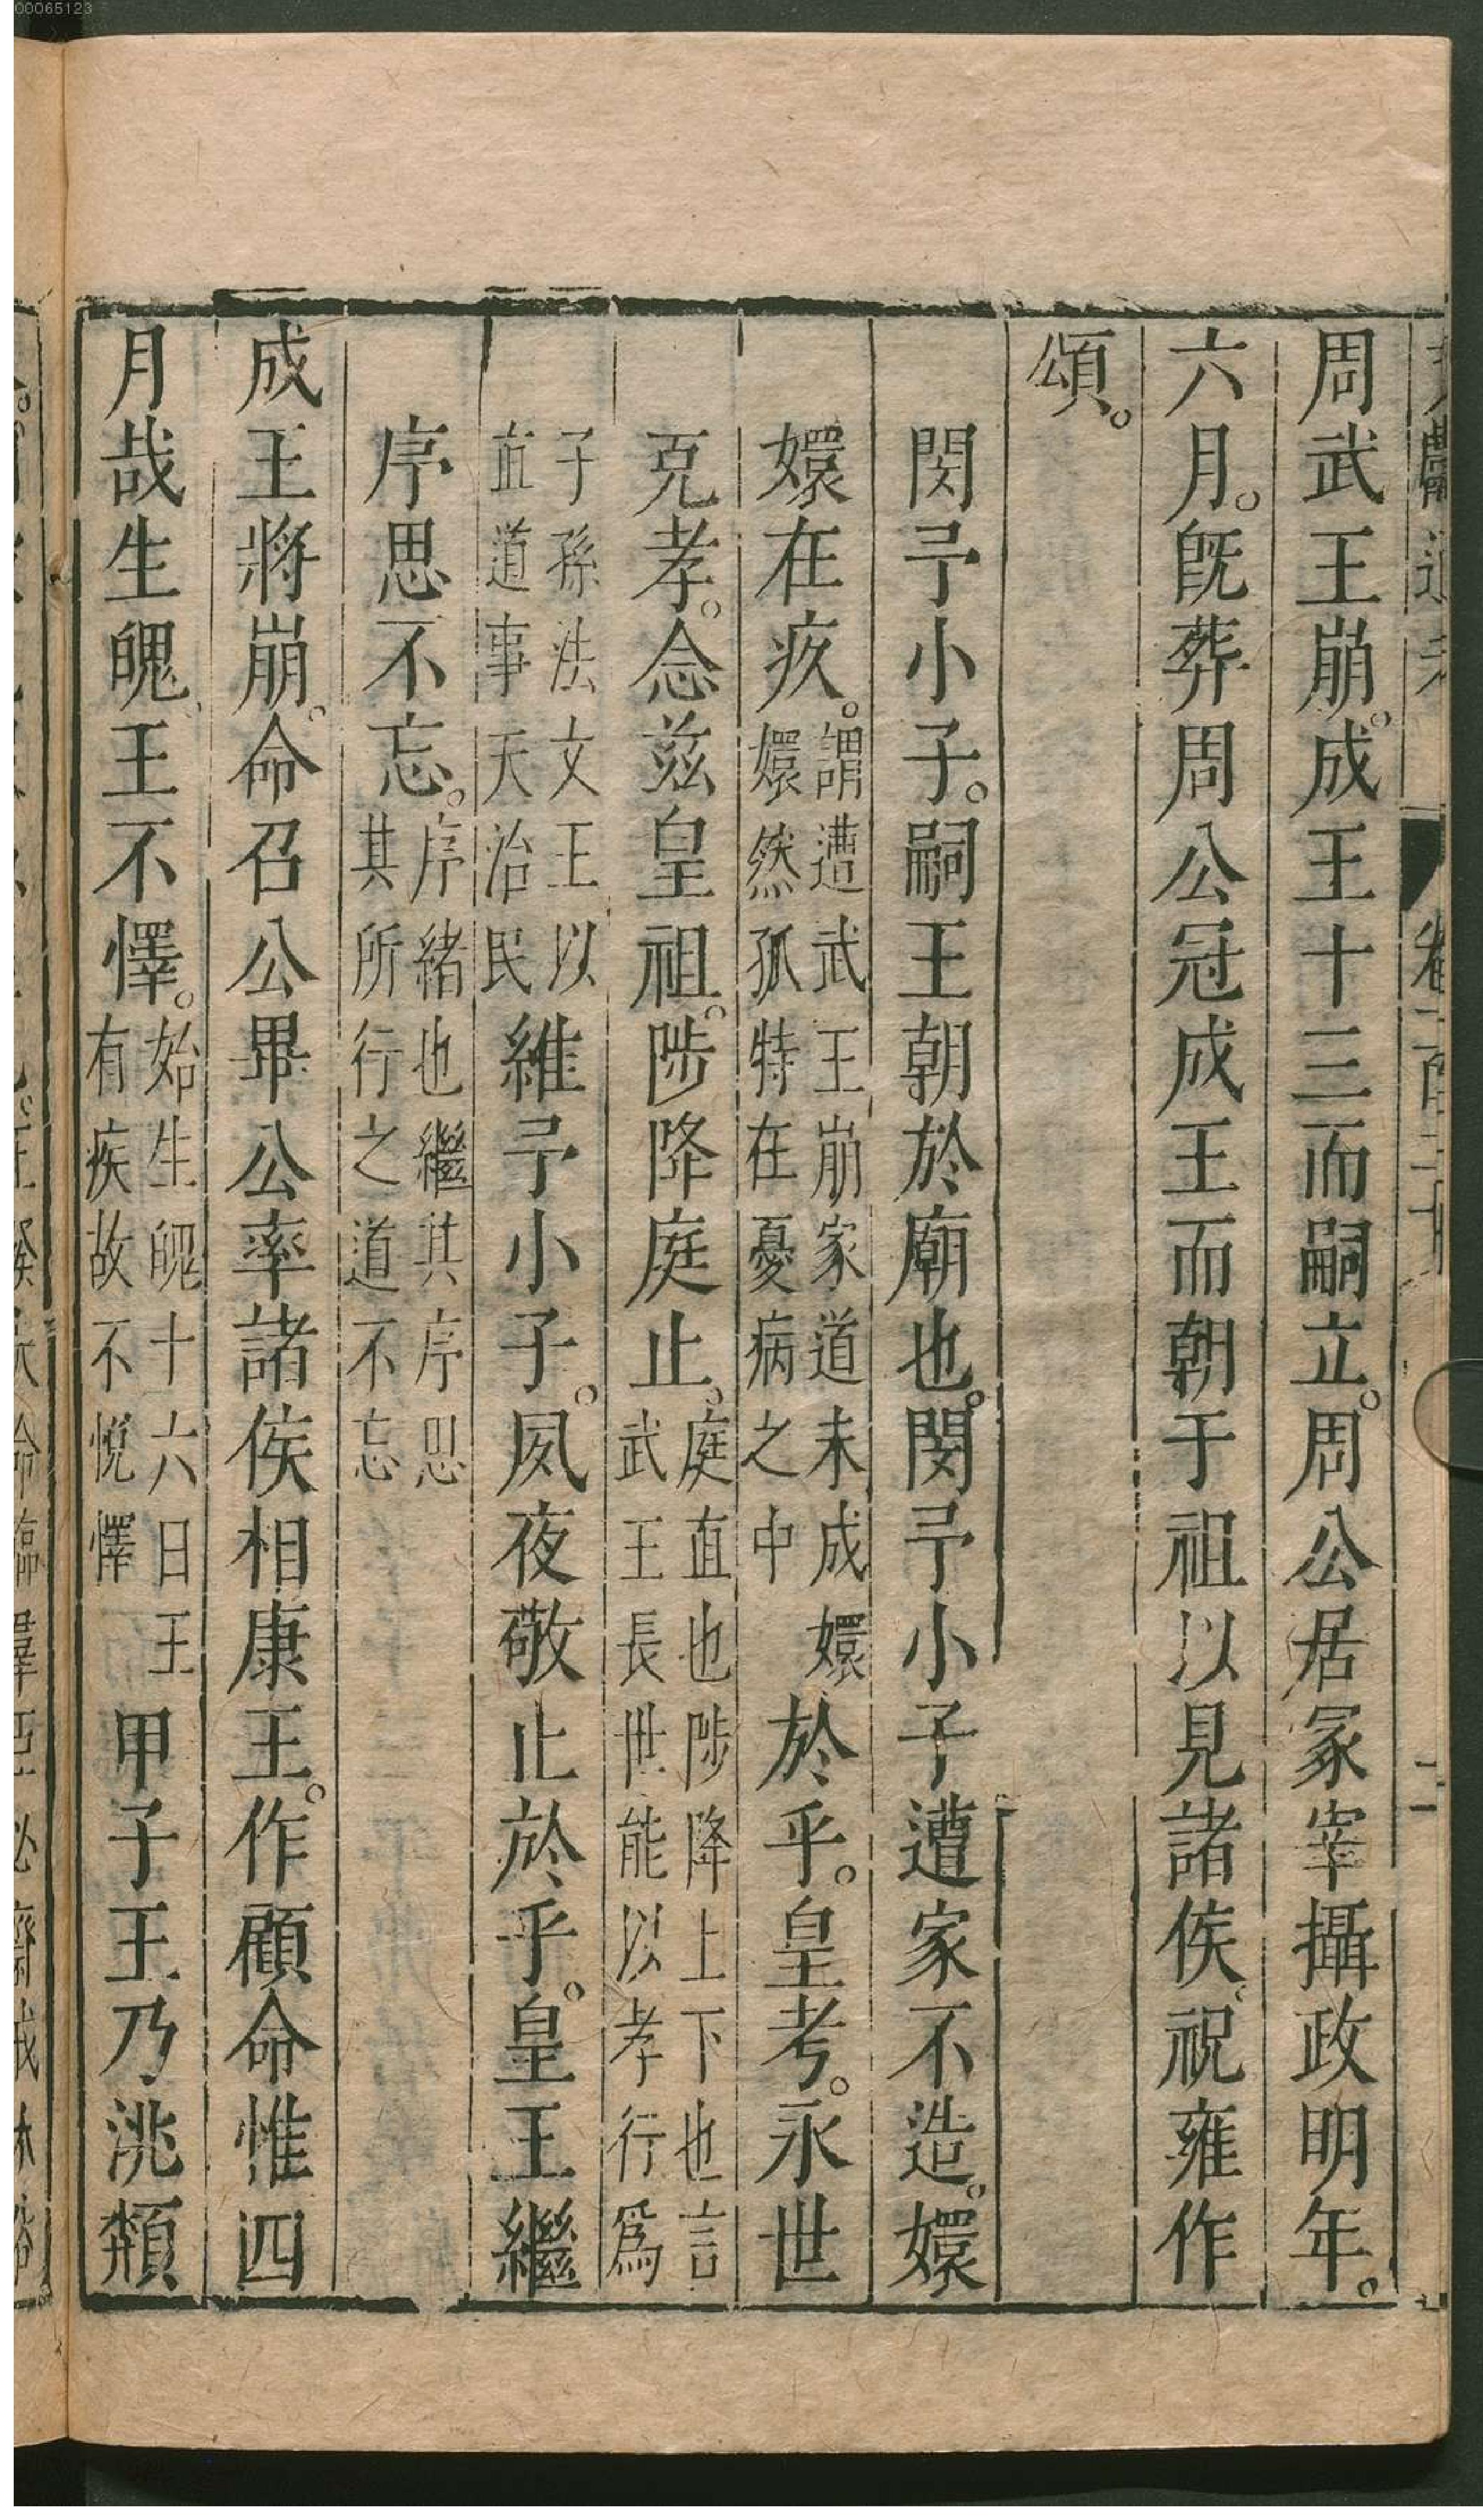 00065123
周武王崩。成王十三而嗣立。周公居冢宰攝政明年。
六月。旣葬周公冠成王而朝于祖以見諸侯、祝雍作
頌。
閔予小子。嗣王朝於廟也。閔予小子遭家不造。嬛
嬛在疚。謂遭武王崩、家道未成嬛嬛然孤特在憂病之中於乎。皇考。永世
克孝。念茲皇祖。陟降庭止。庭直也陟降上下也言武王長世能以孝行爲
子孫法文王、以直道事天治民維予小子。夙夜敬止於乎。皇王繼
序思不忘。序緒也繼其序思其所行之道不忘
成王將崩。命召公畢公率諸侯相康王。作顧命惟四
月哉生魄、王不懌。始生魄十六日王有疾故不悅懌甲子王乃洮頮